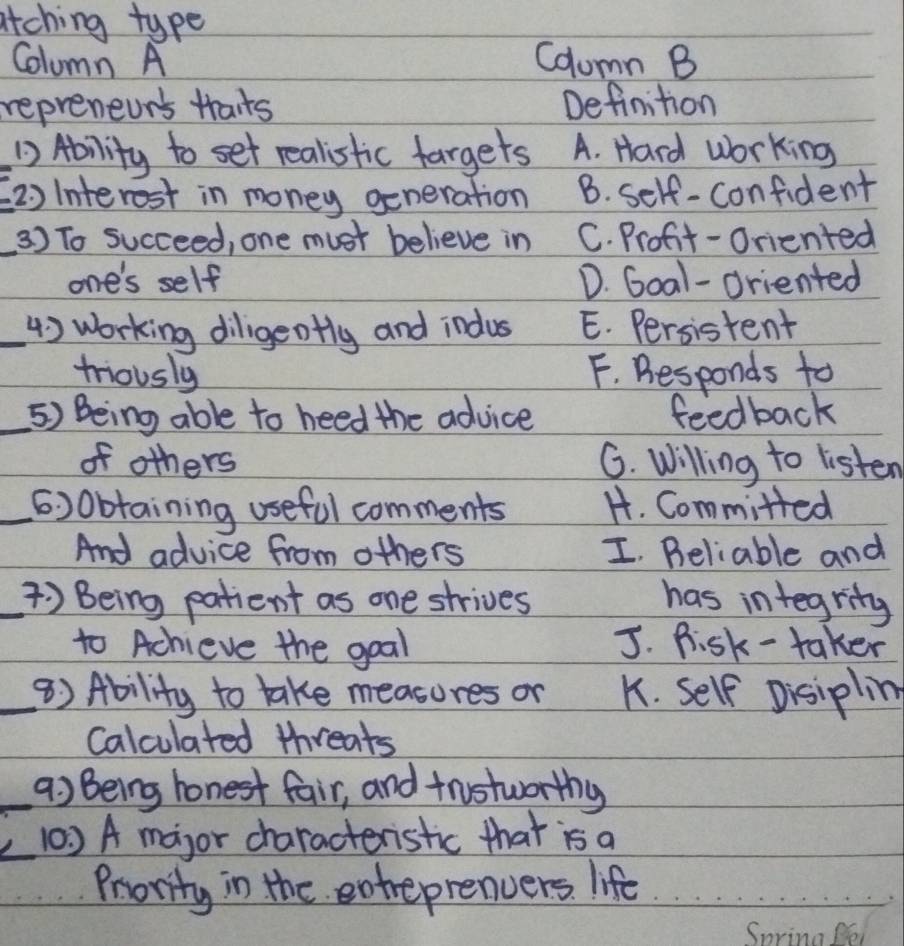 atching type
Column A Column B
repreneur's traits Definition
1.) Ability to set realistic targets A. Hard Working
2.) Interest in money generation B. Self-Confident
3.) To succeed, one must believe in C. Profit-Oriented
one's self D. Goal-Oriented
4.) Working diligently and indus E. Persistent
triously F. Responds to
5.) Being able to heed the advice feedback
of others G. Willing to listen
6.) Obtaining useful comments H. Committed
And advice from others I. Reliable and
7.) Being patient as one strives has integrity
to Achieve the goal J. Risk-taker
8.) Ability to take measures or K. Self Disiplin
Calculated threats
9.) Being honest fair, and trustworthy
10.) A major characteristic that is a
Priority in the entreprenuers life
Spring